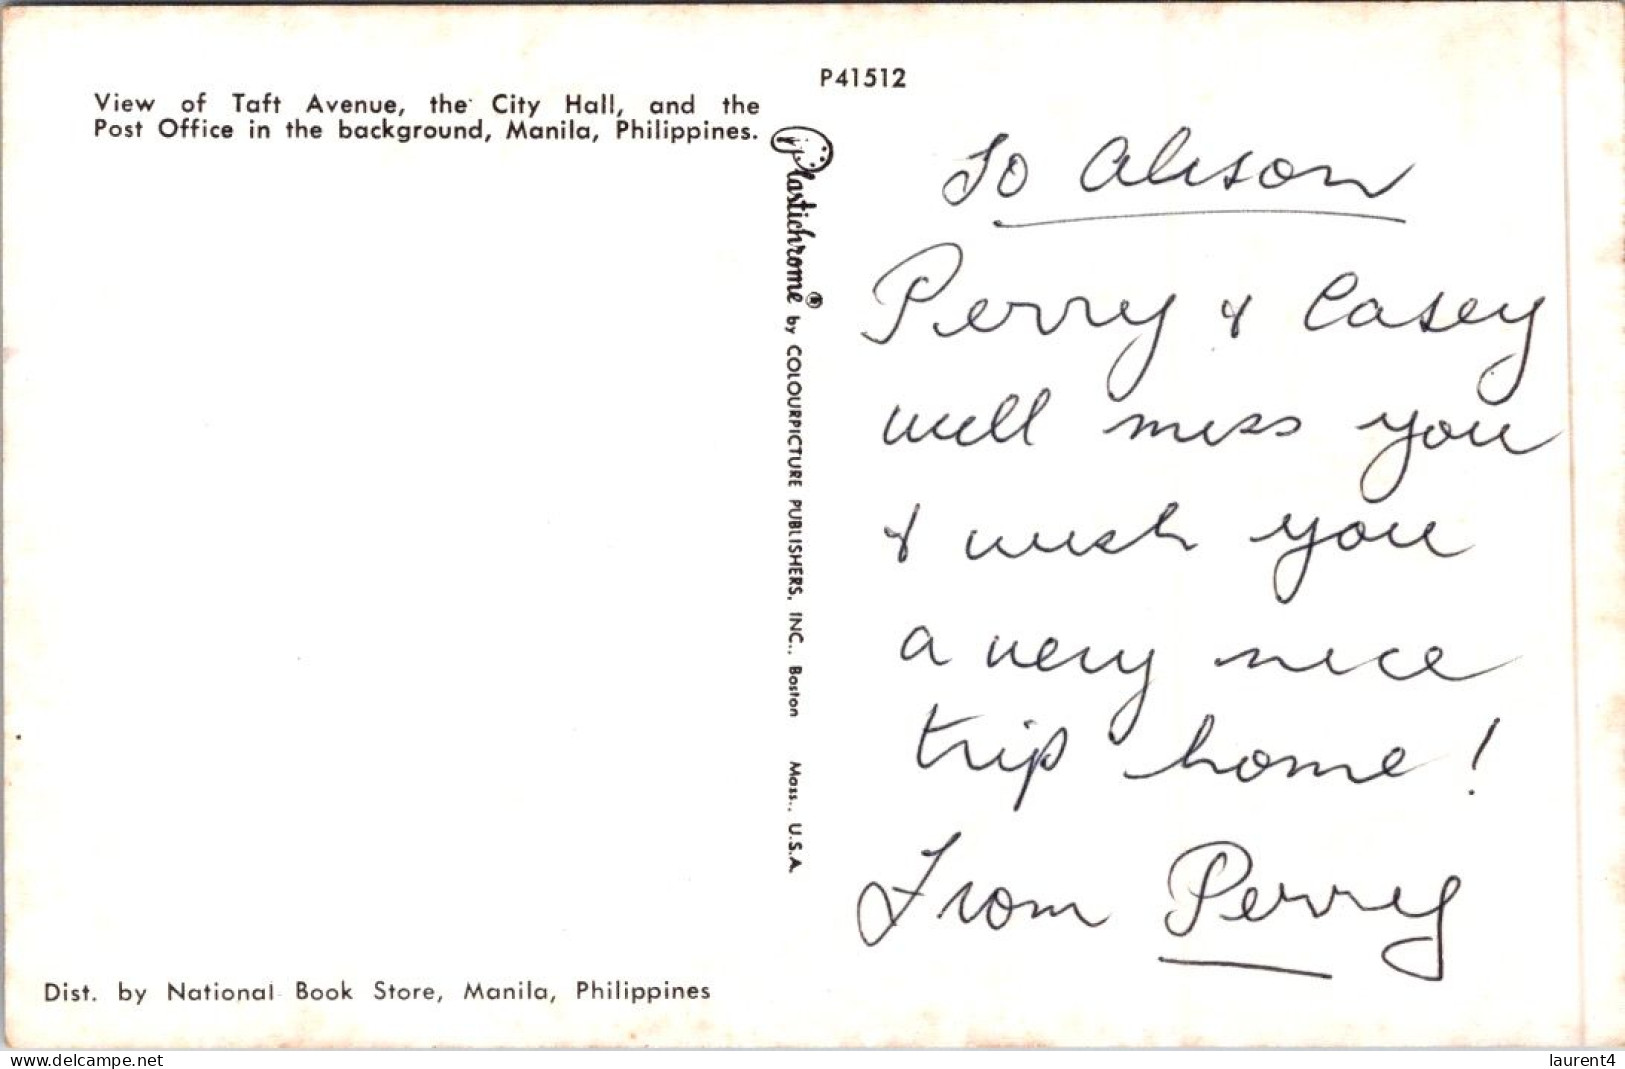 View of Taft Avenue, the City Hall, and the
Post Office in the background, Manila, Philippines.
P41512
Plastichrome® by COLOURPICTURE PUBLISHERS, INC., Boston Mass., U.S.A.
To Alison
Perry & Casey
will miss you
& wish you
a very nice
trip home!
From Perry
Dist. by National Book Store, Manila, Philippines
www.delcampe.net
laurent4